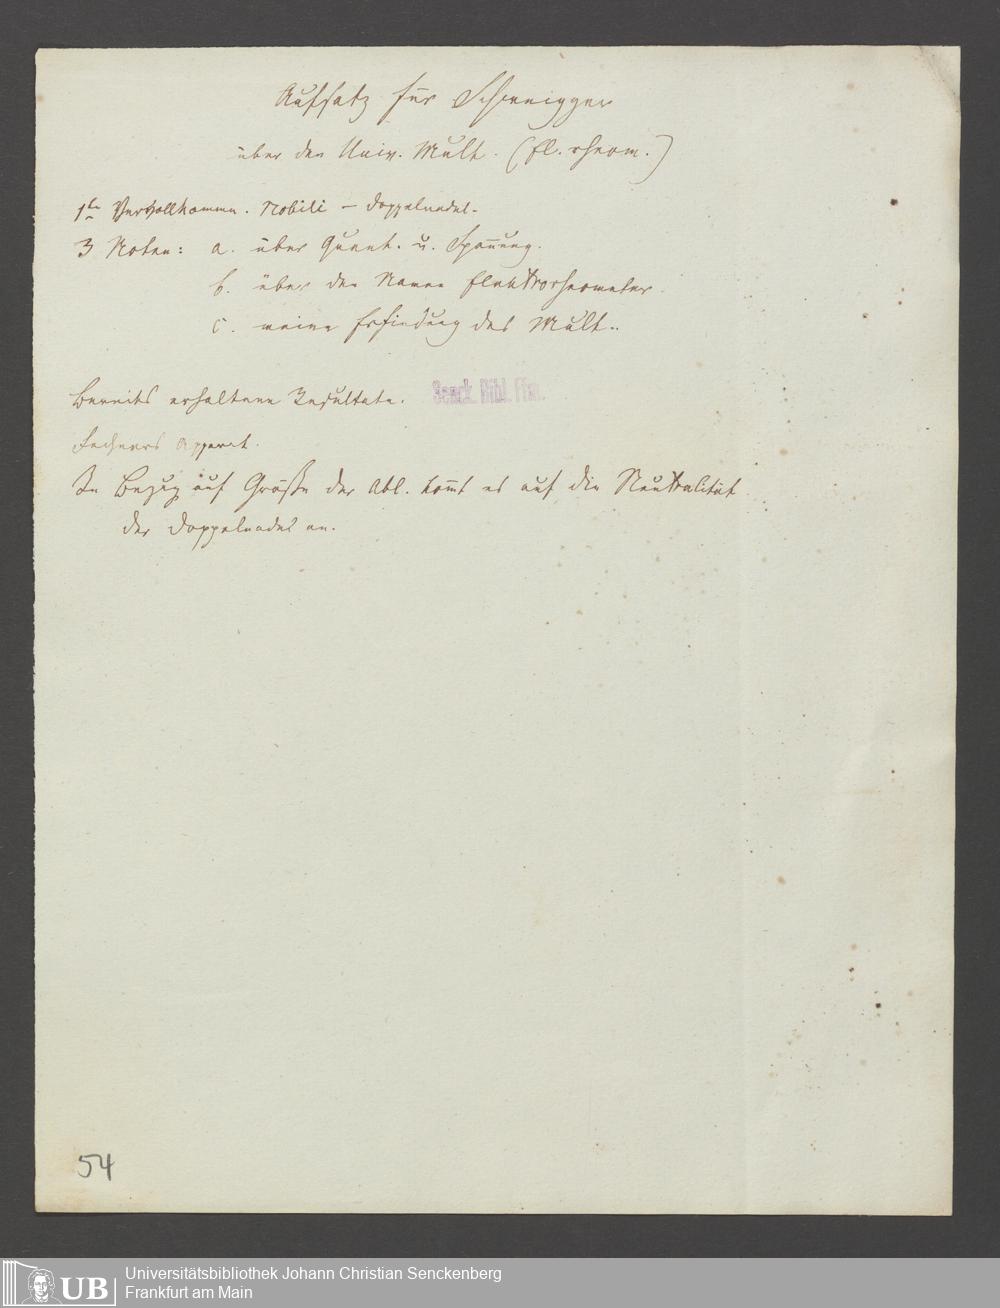 Aufsatz für Schweigger
über den Univ. Mult. (El. rheom.)
1te Vervollkommn. Nobili – Doppelnadel.
3 Noten: a. über Quant. u. Spañung.
b. über den Namen Elektrorheometer.
c. meine Erfindung des Mult..
Bereits erhaltene Resultate.
Senck. Bibl. Ffm.
Fechners Apparat.
In Bezug auf Größe der Abl. kom̃t es auf die Neutralität
der Doppelnadel an.
54
UB
Universitätsbibliothek Johann Christian Senckenberg
Frankfurt am Main